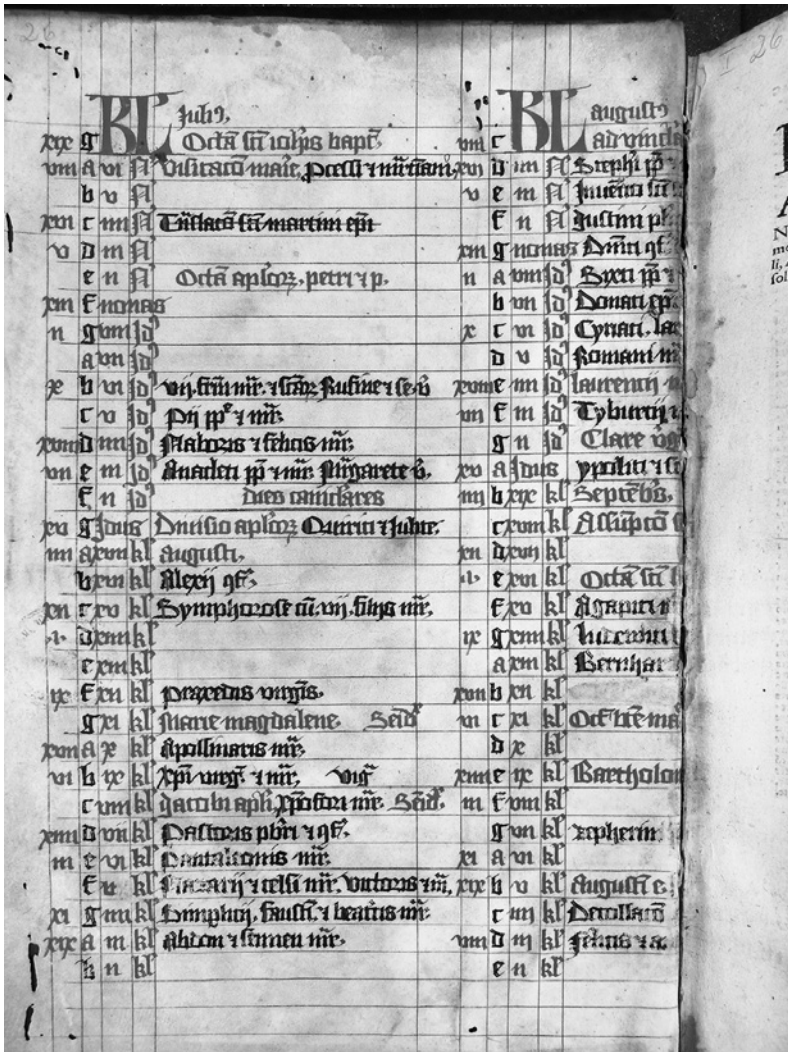 26
KL Julius
xix g Octa sci ioh'is bapt.
viii a vi N visitatio marie. p'cessi & m'tiniani.
b v N
xvi c iiii N Translatio sci martini epi
v d iii N
e ii N Octa aplorz. petri & p.
xiii f nonas
ii g viii Id'
a vii Id'
x b vi Id' vii. frm mr. & scarz Rufine & se. v'
c v Id' Pii pp & mr.
xviii d iiii Id' Naboris & felicis mr.
vii e iii Id' Anacleti pp & mr. Margarete v'.
f ii Id' dies caniclares
xv g Idus Diuisio aplorz Quirici & Julite.
iiii a xvii kl' augusti.
b xvi kl' Alexii gf.
xii c xv kl' Symphorose cu. vii. filiis mr.
i. d xiiii kl'
e xiii kl'
ix f xii kl' praxedis virgis.
g xi kl' Marie magdalene.
xvii a x kl' Apollinaris mr.
vi b ix kl' xpi virg & mr. vig'
c viii kl' Jacobi apli. xpofori mr.
xiiii d vii kl' Pastoris pbri & gf.
iii e vi kl' Pantaleonis mr.
f v kl' Nazarii & celsi mr. victoris & m.
xi g iiii kl' Simplicii. faustI. & beatris mr.
xix a iii kl' Abdon & sennen mr.
b ii kl'
KL augusts
viii c ad vincla
xvi d iiii N Stephi pp
v e iii N Inuentio sci
f ii N Justini pb
xiii g nonas Dnici gf.
ii a viii Id' Syxti pp &
b vii Id' Donati ep
x c vi Id' Cyriaci. la
d v Id' Romani m
xviii e iiii Id' laurencii
vii f iii Id' Tyburcii
g ii Id' Clare v'g
xv a Idus ypoliti & s
iiii b xix kl' Septebs.
c xviii kl' Assuptio
xii d xvii kl'
i. e xvi kl' Octa sci l
f xv kl' Agapiti
ix g xiiii kl'
a xiii kl' Bernhar
xvii b xii kl'
vi c xi kl' Oct' bte ma
d x kl'
xiiii e ix kl' Bartholom
iii f viii kl'
g vii kl' zepherin
xi a vi kl'
xix b v kl' Augusti e.
c iiii kl' Decollatio
viii d iii kl' felicis & a
e ii kl'
I 26